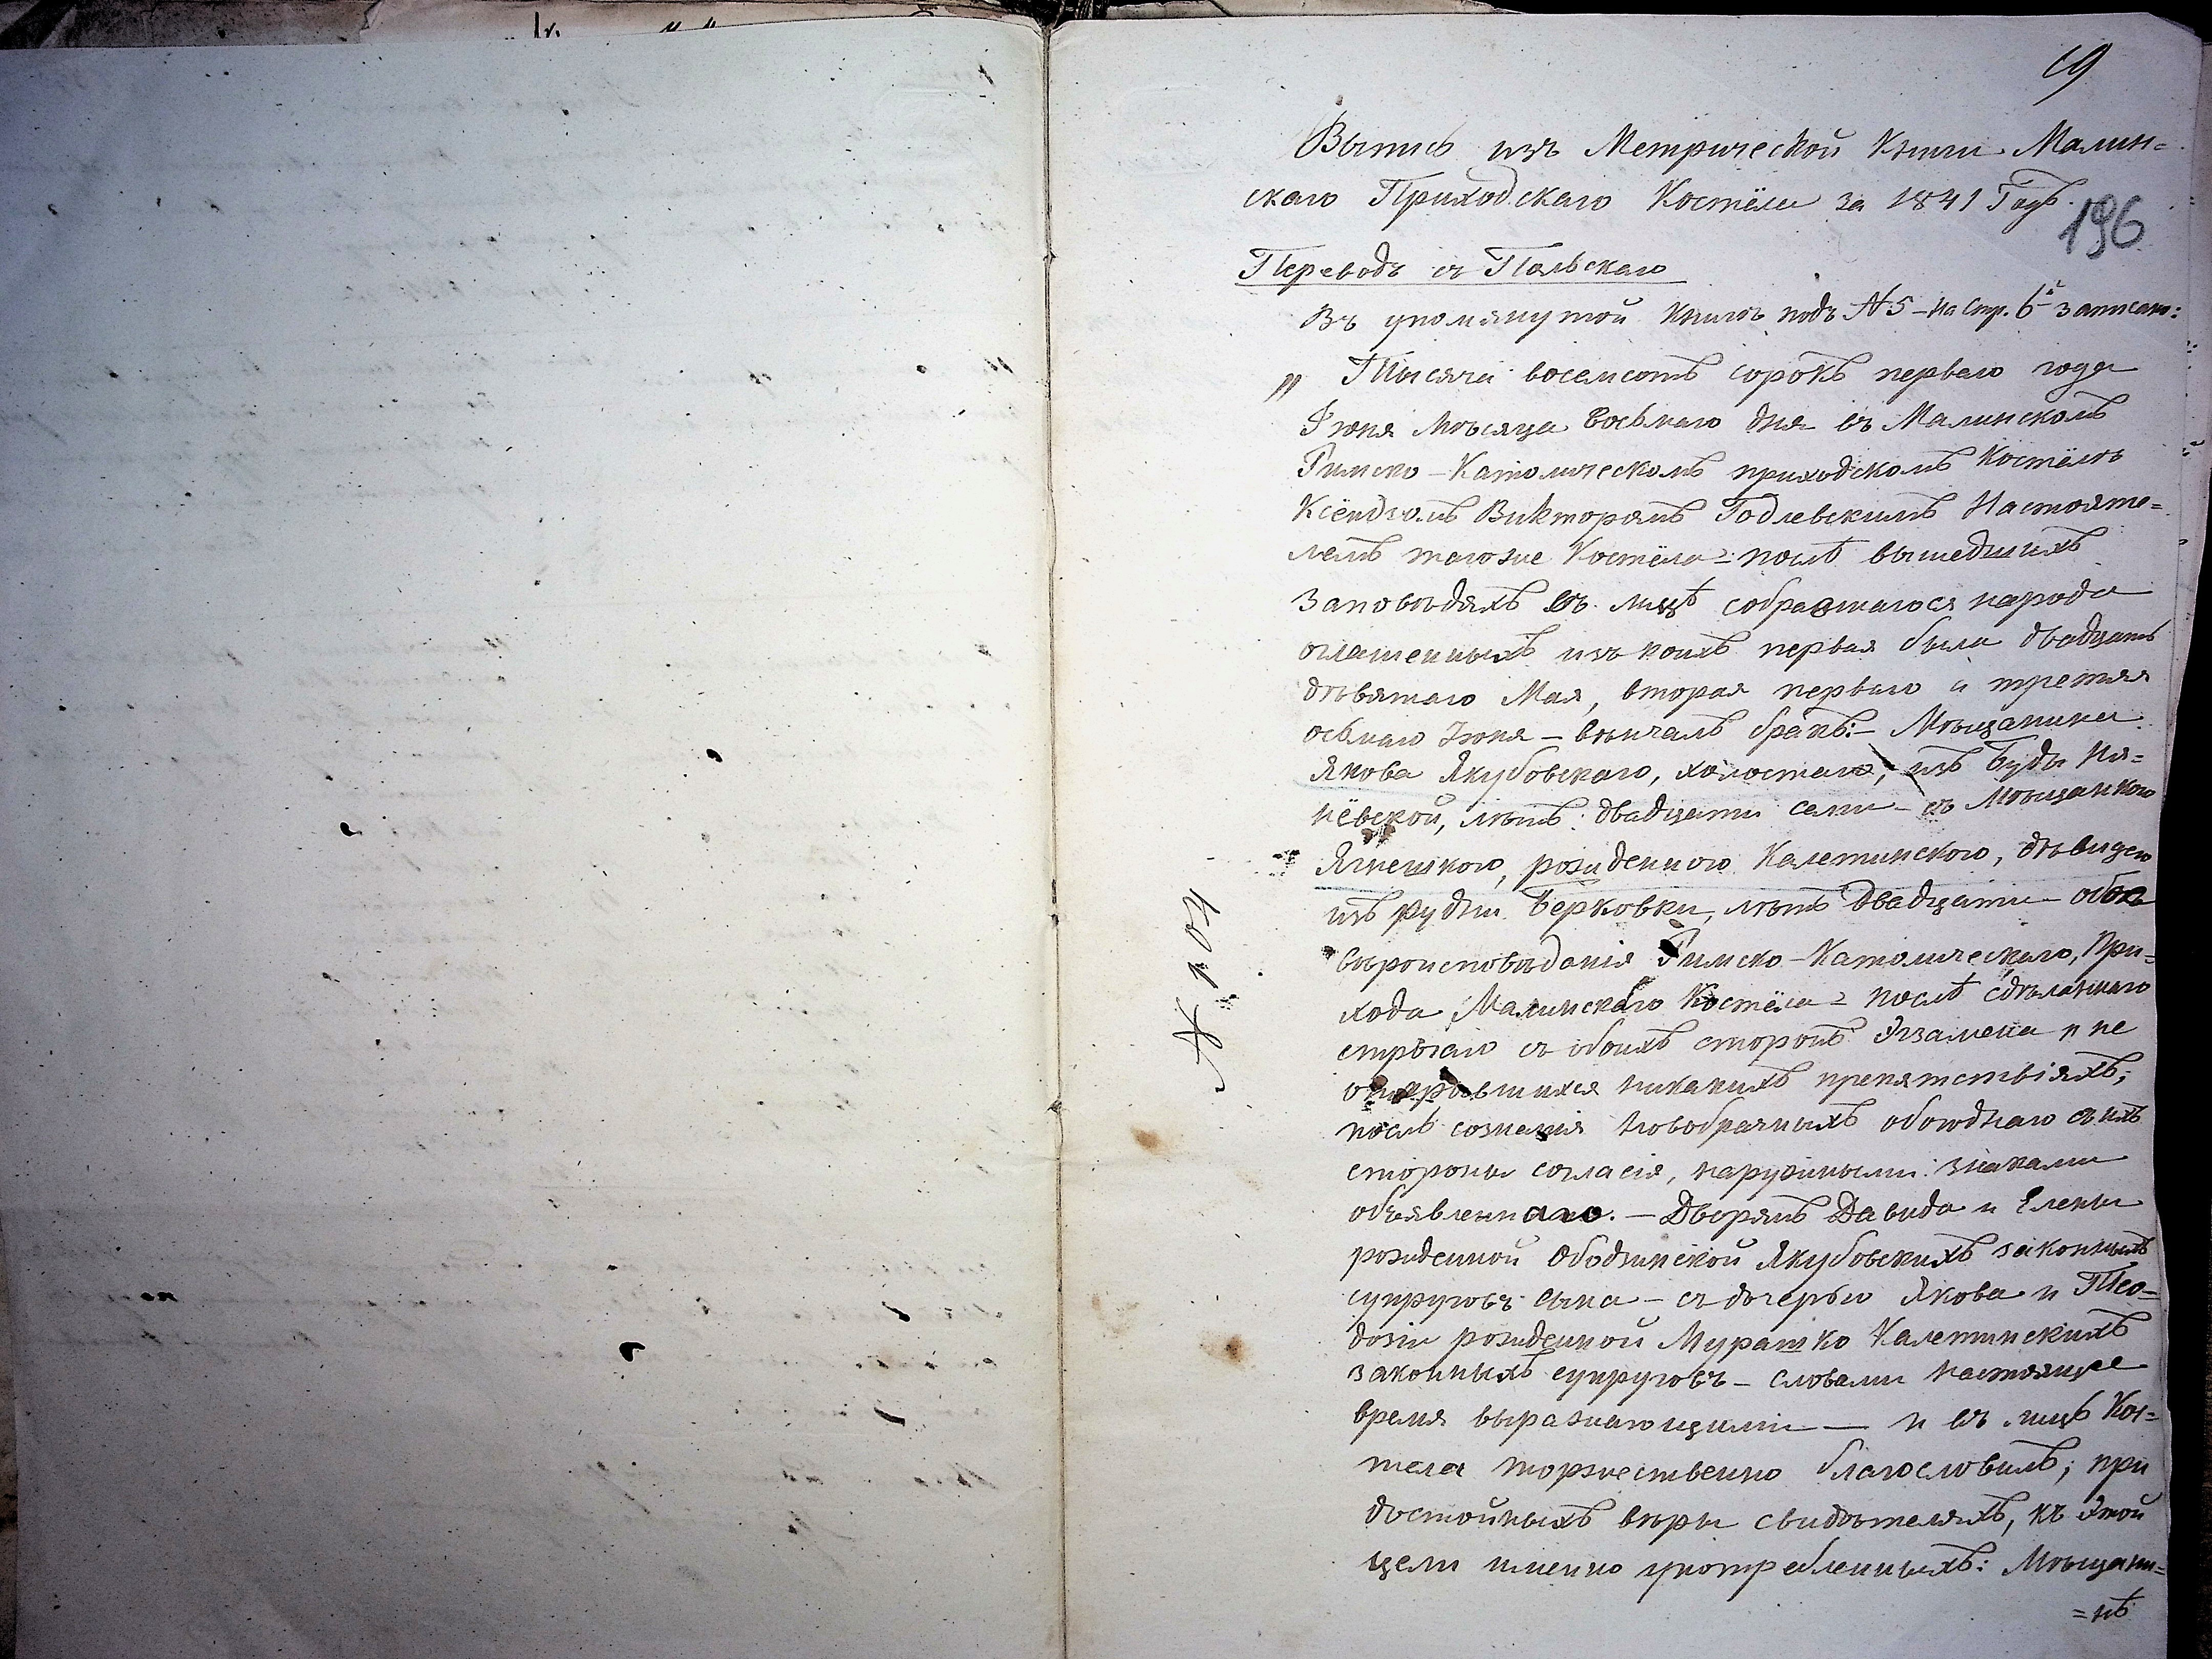 19
Выпись изъ Метрической Книги Малин=
скаго Приходскаго Костёла за 1841 Годъ.
196
Переводъ съ Польскаго
Въ упомянутой книгѣ подъ №5 – на стр. 6й записано:
„ Тысяча восемсотъ сорокъ перваго года
Іюня мѣсяца восьмаго дня въ Малинскомъ
Римско-Католическомъ приходскомъ Костёлѣ
Ксёндзомъ Викторомъ Годлевскимъ Настояте=
лемъ тогоже Костёла – послѣ вышедшихъ
заповѣдяхъ въ лицѣ собравшагося народа
оглашенныхъ изъ коихъ первая была двадцать
дѣвятаго Мая, вторая перваго а третяя
осьмаго Іюня – вѣнчалъ бракъ:– Мѣщанина
Якова Якубовскаго, холостаго, изъ Буды Ня=
нёвской, лѣтъ: двадцати семи – съ Мѣщанкою
Ягнешкою, рожденною Калетинскою, дѣвицею
изъ рудни Берковки, лѣтъ двадцати – обоя
вѣроисповѣданія Римско-Католическаго, При=
хода Малинскаго Костёла – послѣ сдѣланнаго
стрѣгаго съ обоихъ сторонъ Экзамена и не
открывшихся никакихъ препятствіяхъ;
послѣ сознанія новобрачныхъ обоюднаго съ ихъ
стороны согласія, наружными знаками
объявленнаго. – Дворянъ Давида и Елены
рожденной Ободзинской Якубовскихъ законныхъ
супруговъ сына – съ дочерью Якова и Тео=
дозіи рожденной Мурашко Калетинскихъ
законныхъ супруговъ – словами настоящее
время выражающими — и въ лицѣ Кос=
тела торжественно благословилъ; при
достойныхъ вѣры свидѣтеляхъ, къ этой
цели именно употребленныхъ: Мѣщани=
=нѣ